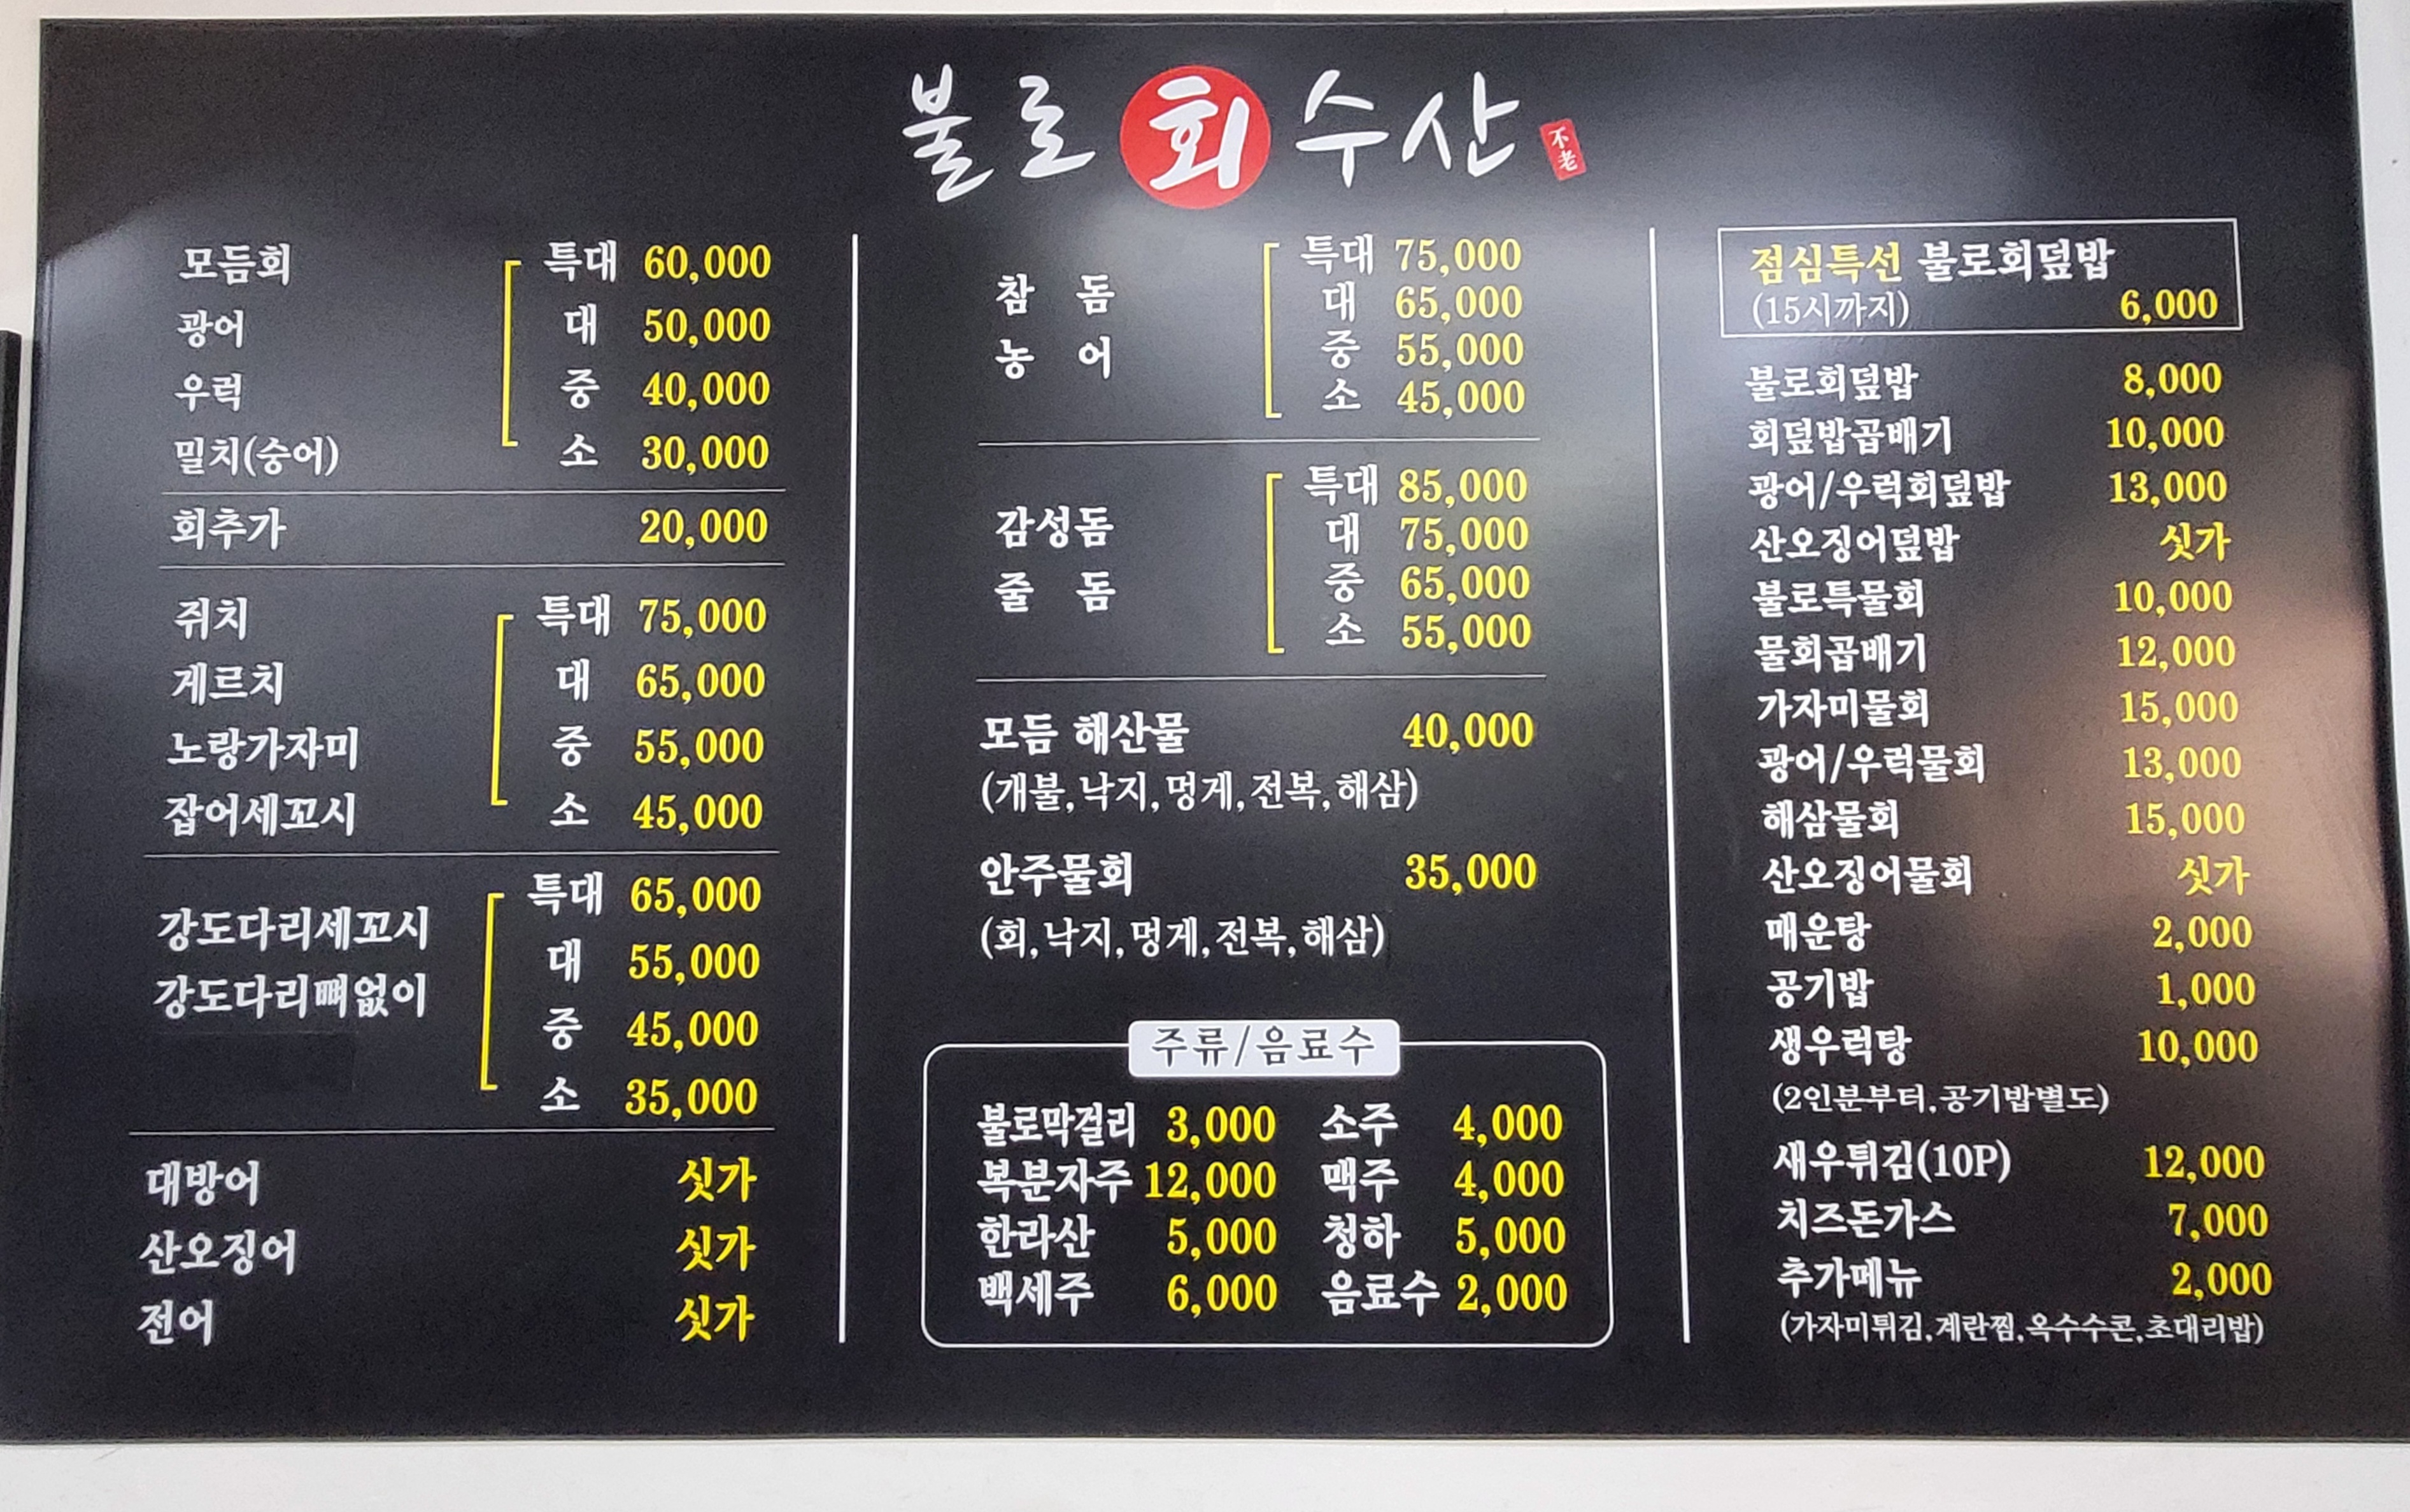 불로회수산
不老
모듬회
광어
우럭
밀치(숭어)
특대 60,000
대 50,000
중 40,000
소 30,000
회추가 20,000
쥐치
게르치
노랑가자미
잡어세꼬시
특대 75,000
대 65,000
중 55,000
소 45,000
강도다리세꼬시
강도다리뼈없이
특대 65,000
대 55,000
중 45,000
소 35,000
대방어 싯가
산오징어 싯가
전어 싯가
참 돔
농 어
특대 75,000
대 65,000
중 55,000
소 45,000
감성돔
줄 돔
특대 85,000
대 75,000
중 65,000
소 55,000
모듬 해산물 40,000
(개불,낙지,멍게,전복,해삼)
안주물회 35,000
(회,낙지,멍게,전복,해삼)
주류/음료수
불로막걸리 3,000 소주 4,000
복분자주 12,000 맥주 4,000
한라산 5,000 청하 5,000
백세주 6,000 음료수 2,000
점심특선 불로회덮밥
(15시까지) 6,000
불로회덮밥 8,000
회덮밥곱배기 10,000
광어/우럭회덮밥 13,000
산오징어덮밥 싯가
불로특물회 10,000
물회곱배기 12,000
가자미물회 15,000
광어/우럭물회 13,000
해삼물회 15,000
산오징어물회 싯가
매운탕 2,000
공기밥 1,000
생우럭탕 10,000
(2인분부터,공기밥별도)
새우튀김(10P) 12,000
치즈돈가스 7,000
추가메뉴 2,000
(가자미튀김,계란찜,옥수수콘,초대리밥)